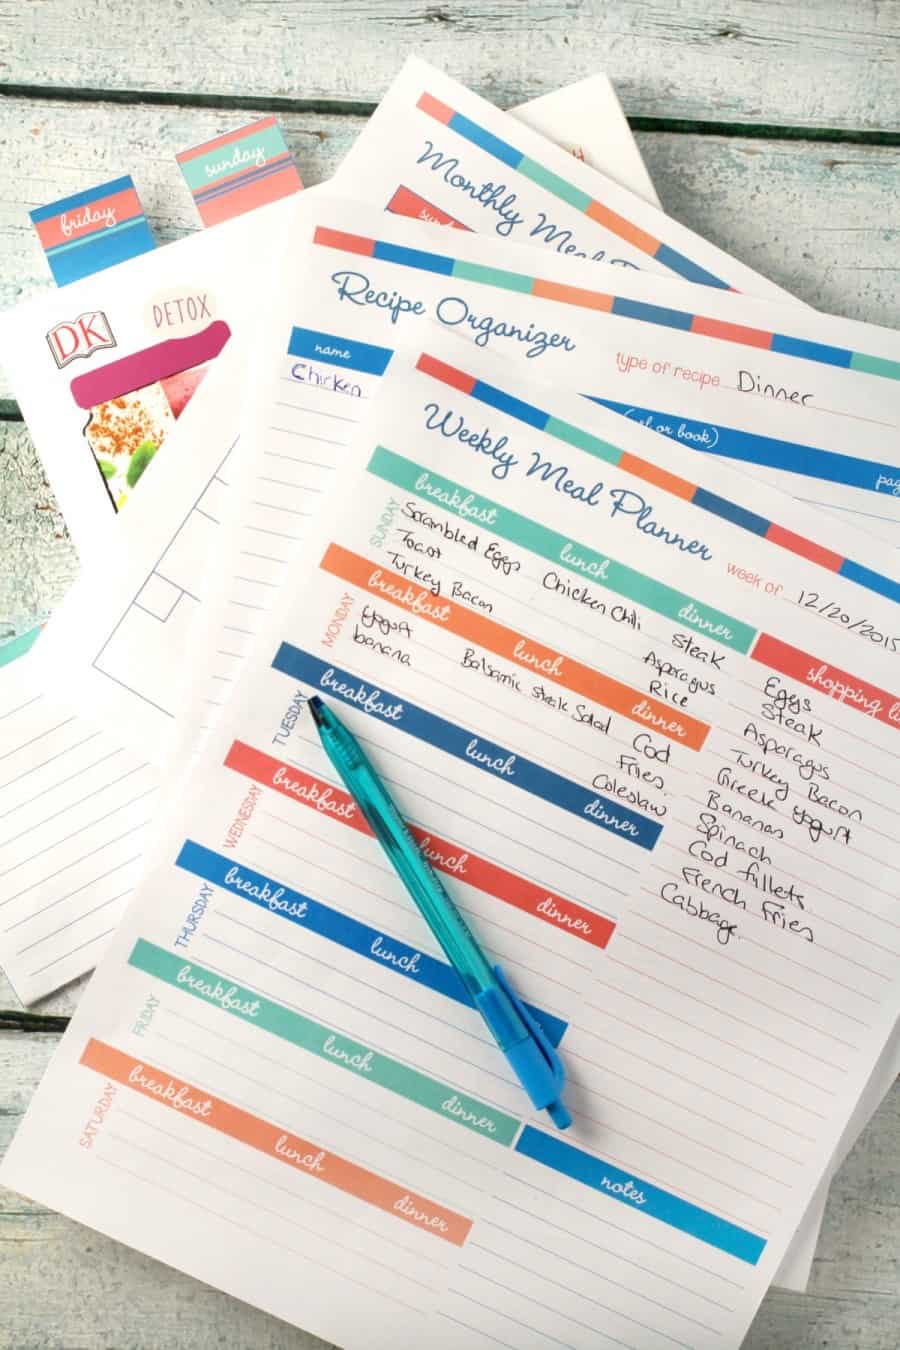 friday
sunday
DK
DETOX
Monthly Meal
sund
Recipe Organizer
type of recipe Dinner
name
Chicken
or book)
pag
Weekly Meal Planner
week of 12/20/2015
SUNDAY
breakfast lunch dinner
Scrambled Eggs
Toast
Turkey Bacon
Chicken Chili
Steak
Asparagus
Rice
MONDAY
breakfast lunch dinner
Yogurt
banana
Balsamic Steak Salad
Cod
Fries
Coleslaw
TUESDAY
breakfast lunch dinner
WEDNESDAY
breakfast lunch dinner
THURSDAY
breakfast lunch
FRIDAY
breakfast lunch dinner
SATURDAY
breakfast lunch dinner
shopping li
Eggs
Steak
Asparagus
Turkey Bacon
Greek yogurt
Bananas
Spinach
Cod fillets
French Fries
Cabbage.
notes